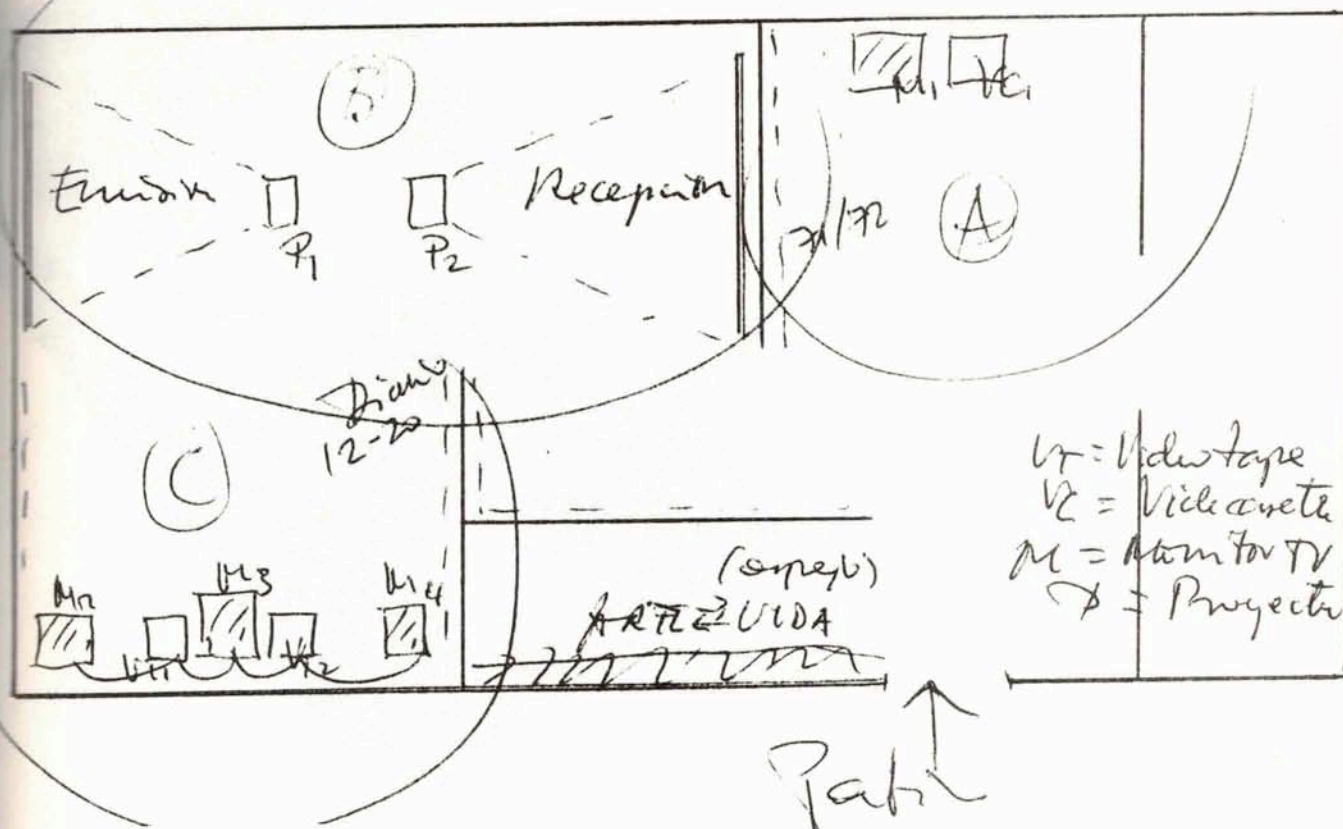 B
M1 VC1
Emisión
P1
P2
Recepción
71/72
A
Diario
12-20
C
M2
VT1
M3
VT2
M4
(espejo)
ARTE ⇄ VIDA
VT = Videotape
VC = Videocasete
M = Monitor TV
P = Proyector
Patio